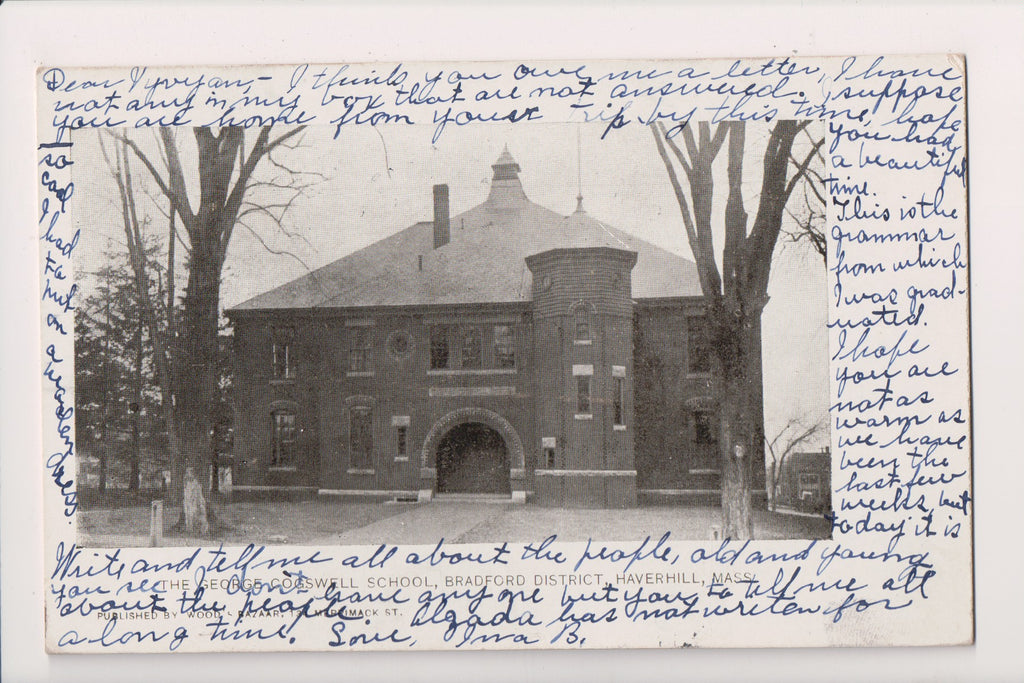 Dear Vyvyan,- I think you owe me a letter, I have
not any in my box that are not answered. I suppose
you are home from your trip by this time, hope
you had
a beautiful
time.
This is the
grammar
from which
I was grad-
uated.
I hope
you are
not as
warm as
we have
been the
last few
weeks, but
today it is
so cool I had to put on a woolen dress.
Write and tell me all about the people, old and young
you see don't leave anyone but you, to tell me all
about the people. Algada has not writen for
a long time. Love, Ina B.
THE GEORGE COGSWELL SCHOOL, BRADFORD DISTRICT, HAVERHILL, MASS.
PUBLISHED BY WOOD'S BAZAAR, MERRIMACK ST.